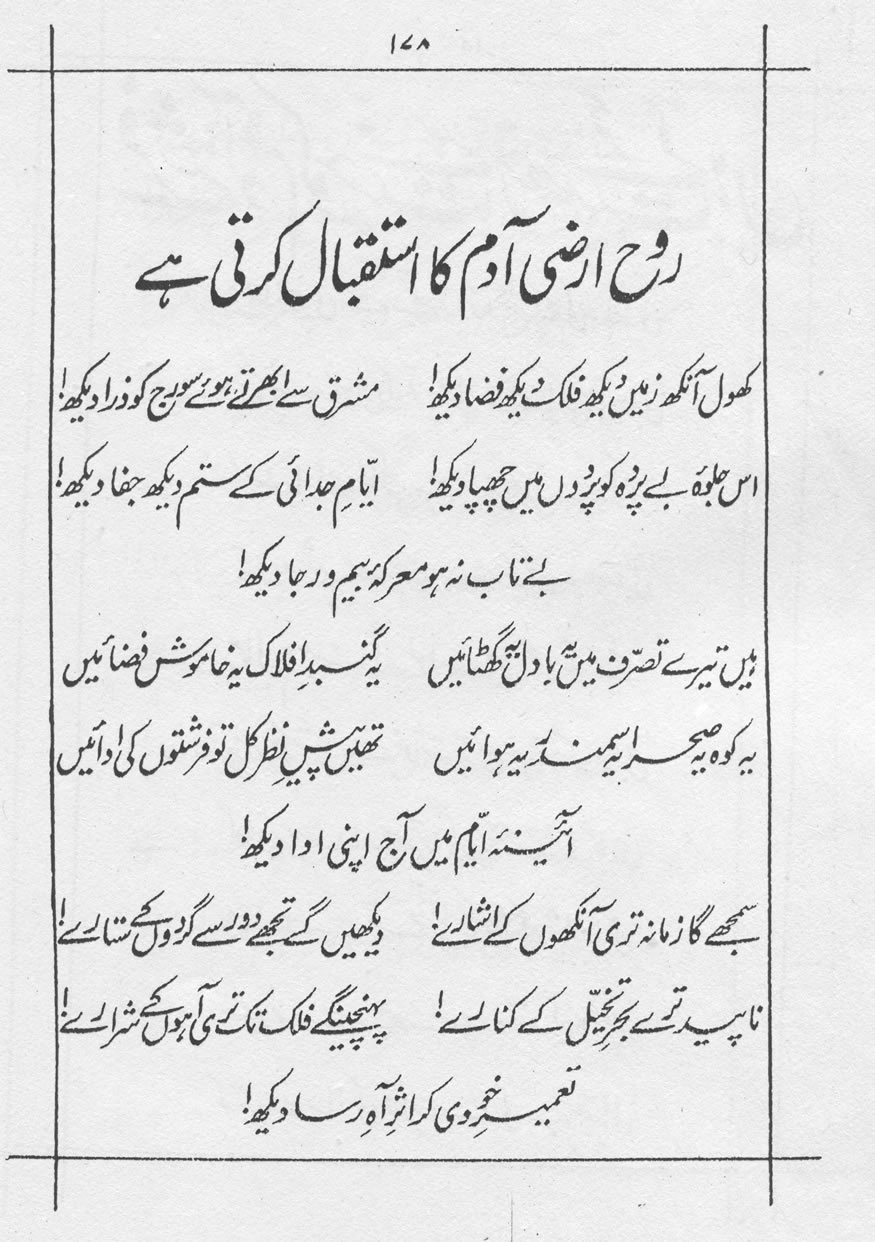 ۱۷۸
روحِ ارضی آدم کا استقبال کرتی ہے
کھول آنکھ زمیں دیکھ فلک دیکھ فضا دیکھ! مشرق سے ابھرتے ہوئے سورج کو ذرا دیکھ!
اس جلوۂ بے پردہ کو پردوں میں چھپا دیکھ! ایّامِ جدائی کے ستم دیکھ جفا دیکھ!
بے تاب نہ ہو معرکۂ بیم و رجا دیکھ!
ہیں تیرے تصرّف میں یہ بادل یہ گھٹائیں یہ گنبدِ افلاک یہ خاموش فضائیں
یہ کوہ یہ صحرا یہ سمندر یہ ہوائیں تھیں پیشِ نظر کل تو فرشتوں کی ادائیں
آئینۂ ایّام میں آج اپنی ادا دیکھ!
سمجھے گا زمانہ تری آنکھوں کے اشارے! دیکھیں گے تجھے دور سے گردوں کے ستارے!
ناپید ترے بحرِ تخیّل کے کنارے! پہنچینگے فلک تک تری آہوں کے شرارے!
تعمیرِ خودی کر اثرِ آہِ رسا دیکھ!